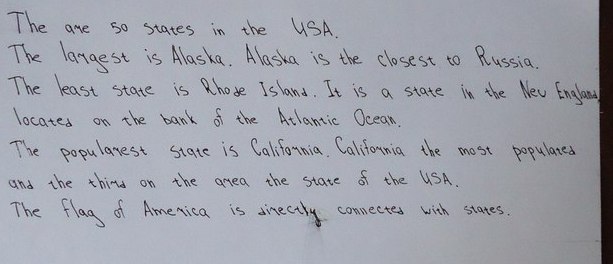 The are 50 states in the USA.
The largest is Alaska. Alaska is the closest to Russia.
The least state is Rhode Island. It is a state in the New England
located on the bank of the Atlantic Ocean.
The popularest state is California. California the most populated
and the third on the area the state of the USA.
The flag of America is directly connected with states.